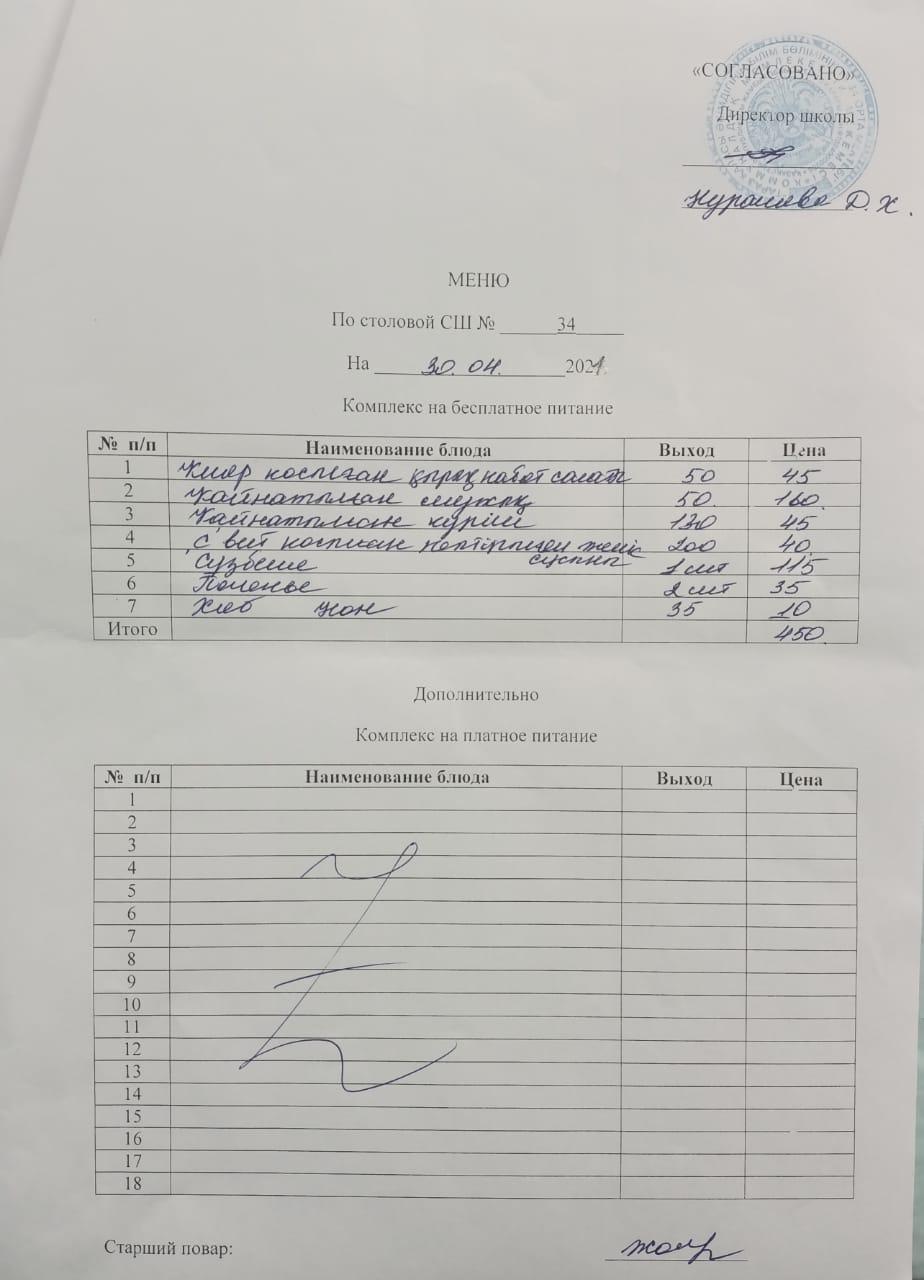 «СОГЛАСОВАНО»
Директор школы
Д. Х.
МЕНЮ
По столовой СШ № 34
На 30. 04. 2021
Комплекс на бесплатное питание
№ п/п Наименование блюда Выход Цена
1 Кияр қосылған салат 50 45
2 Қайнатылған 50. 160.
3 Қайнатылған күріш 130 45
4 "С" вит қосылған кептірілген жеміс сусыны 200 40.
5 Сузбеше 1 шт 115
6 Печенье 2 шт 35
7 Хлеб нан 35 10
Итого 450.
Дополнительно
Комплекс на платное питание
№ п/п Наименование блюда Выход Цена
1
2
3
4
5
6
7
8
9
10
11
12
13
14
15
16
17
18
Старший повар: